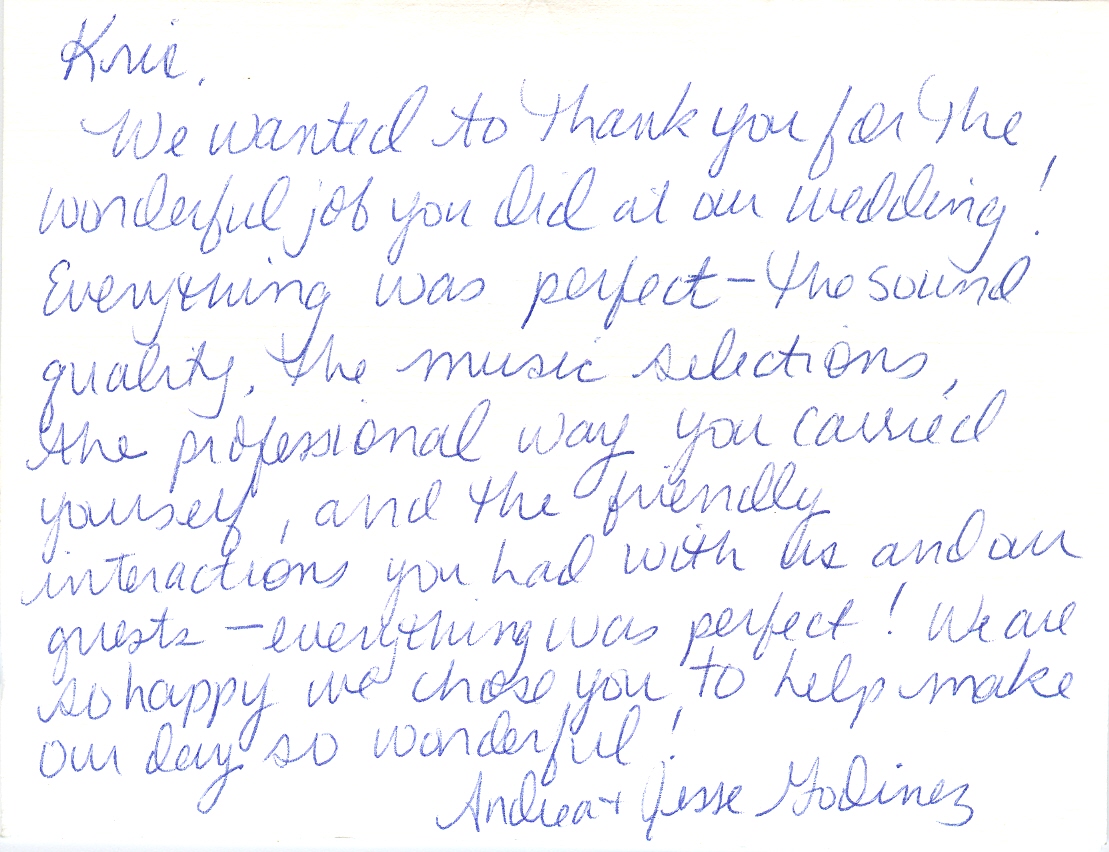 Kric,
We wanted to thank you for the
wonderful job you did at our wedding!
Everything was perfect - the sound
quality, the music selections,
the professional way you carried
yourself, and the friendly
interactions you had with us and our
guests - everything was perfect! We are
so happy we chose you to help make
our day so wonderful!
Andrea + Jesse Godinez